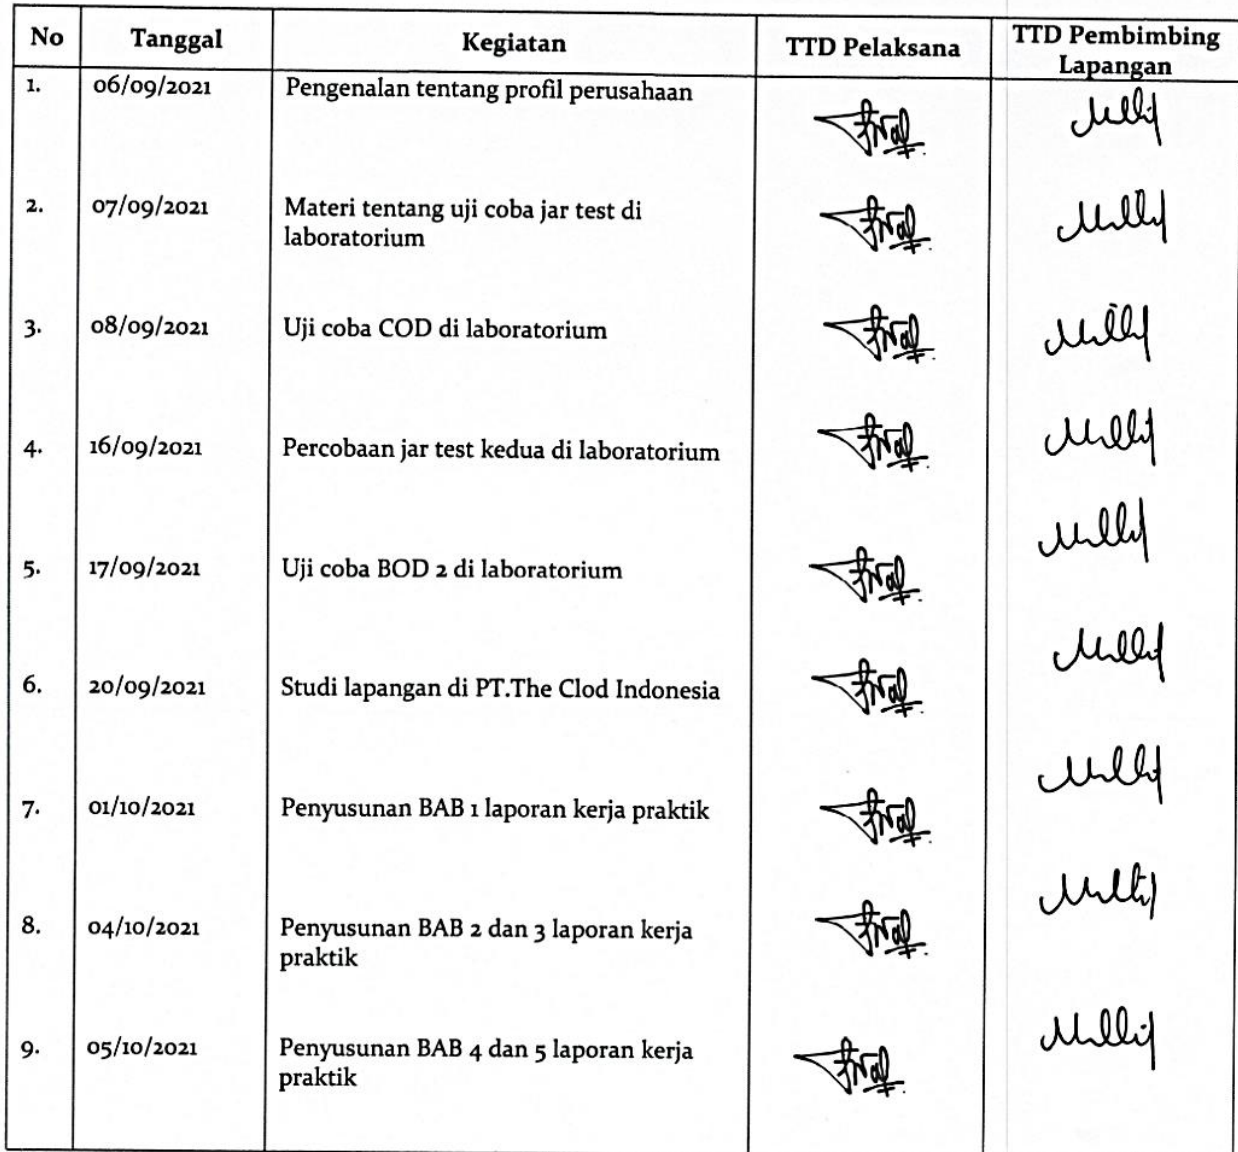 No Tanggal Kegiatan TTD Pelaksana TTD Pembimbing
Lapangan
1. 06/09/2021 Pengenalan tentang profil perusahaan
2. 07/09/2021 Materi tentang uji coba jar test di
laboratorium
3. 08/09/2021 Uji coba COD di laboratorium
4. 16/09/2021 Percobaan jar test kedua di laboratorium
5. 17/09/2021 Uji coba BOD 2 di laboratorium
6. 20/09/2021 Studi lapangan di PT.The Clod Indonesia
7. 01/10/2021 Penyusunan BAB 1 laporan kerja praktik
8. 04/10/2021 Penyusunan BAB 2 dan 3 laporan kerja
praktik
9. 05/10/2021 Penyusunan BAB 4 dan 5 laporan kerja
praktik